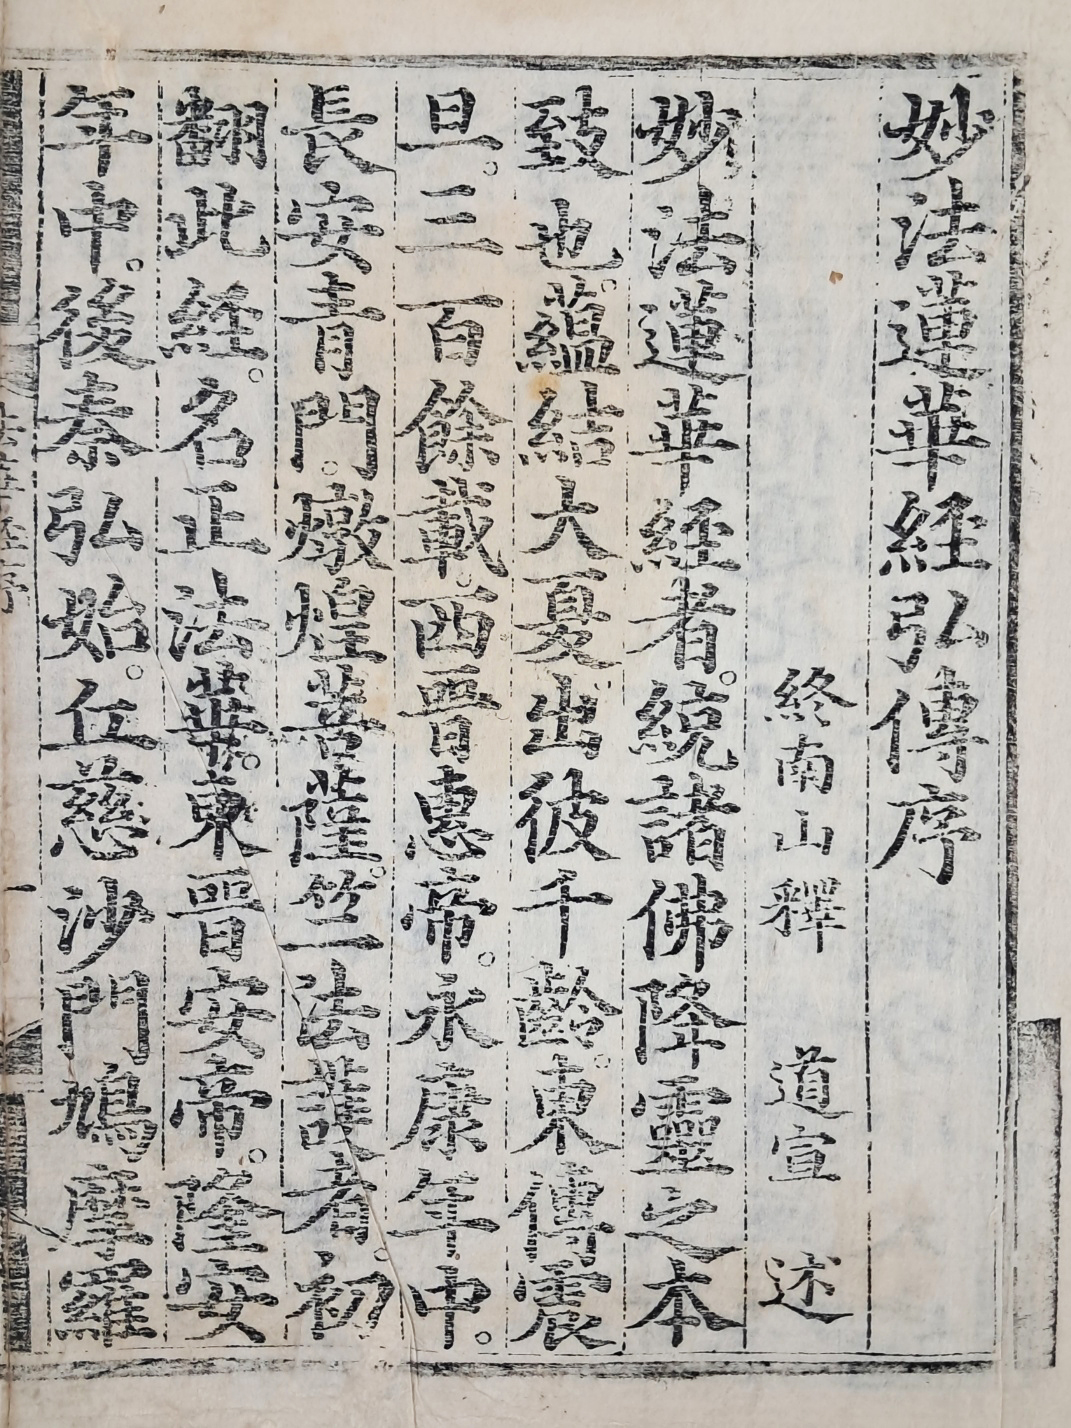 妙法蓮華経弘傳序
終南山釋 道宣 述
妙法蓮華経者。統諸佛降靈之本
致也。蘊結大夏出彼千齡。東傳震
旦。三百餘載。西晋惠帝。永康年中。
長安青門。燉煌菩薩。竺法護者。初
翻此経。名正法華。東晋安帝。隆安
年中。後秦弘始。丘慈沙門鳩摩羅